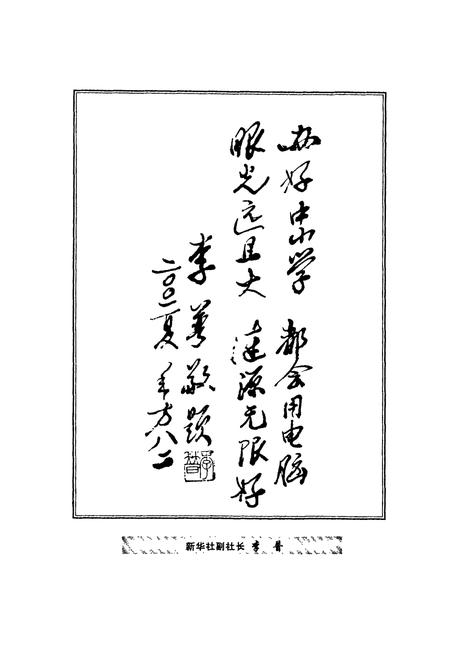 办好中小学 都会用电脑
眼光远且大 涟源无限好
李普敬题
二〇〇一夏 年方八二
李普
新华社副社长 李普